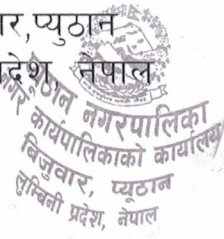 ार,प्युठान
प्रदेश नेपाल
प्यूठान नगरपालिका
नगर कार्यपालिकाको कार्यालय
बिजुवार, प्यूठान
लुम्बिनी प्रदेश, नेपाल